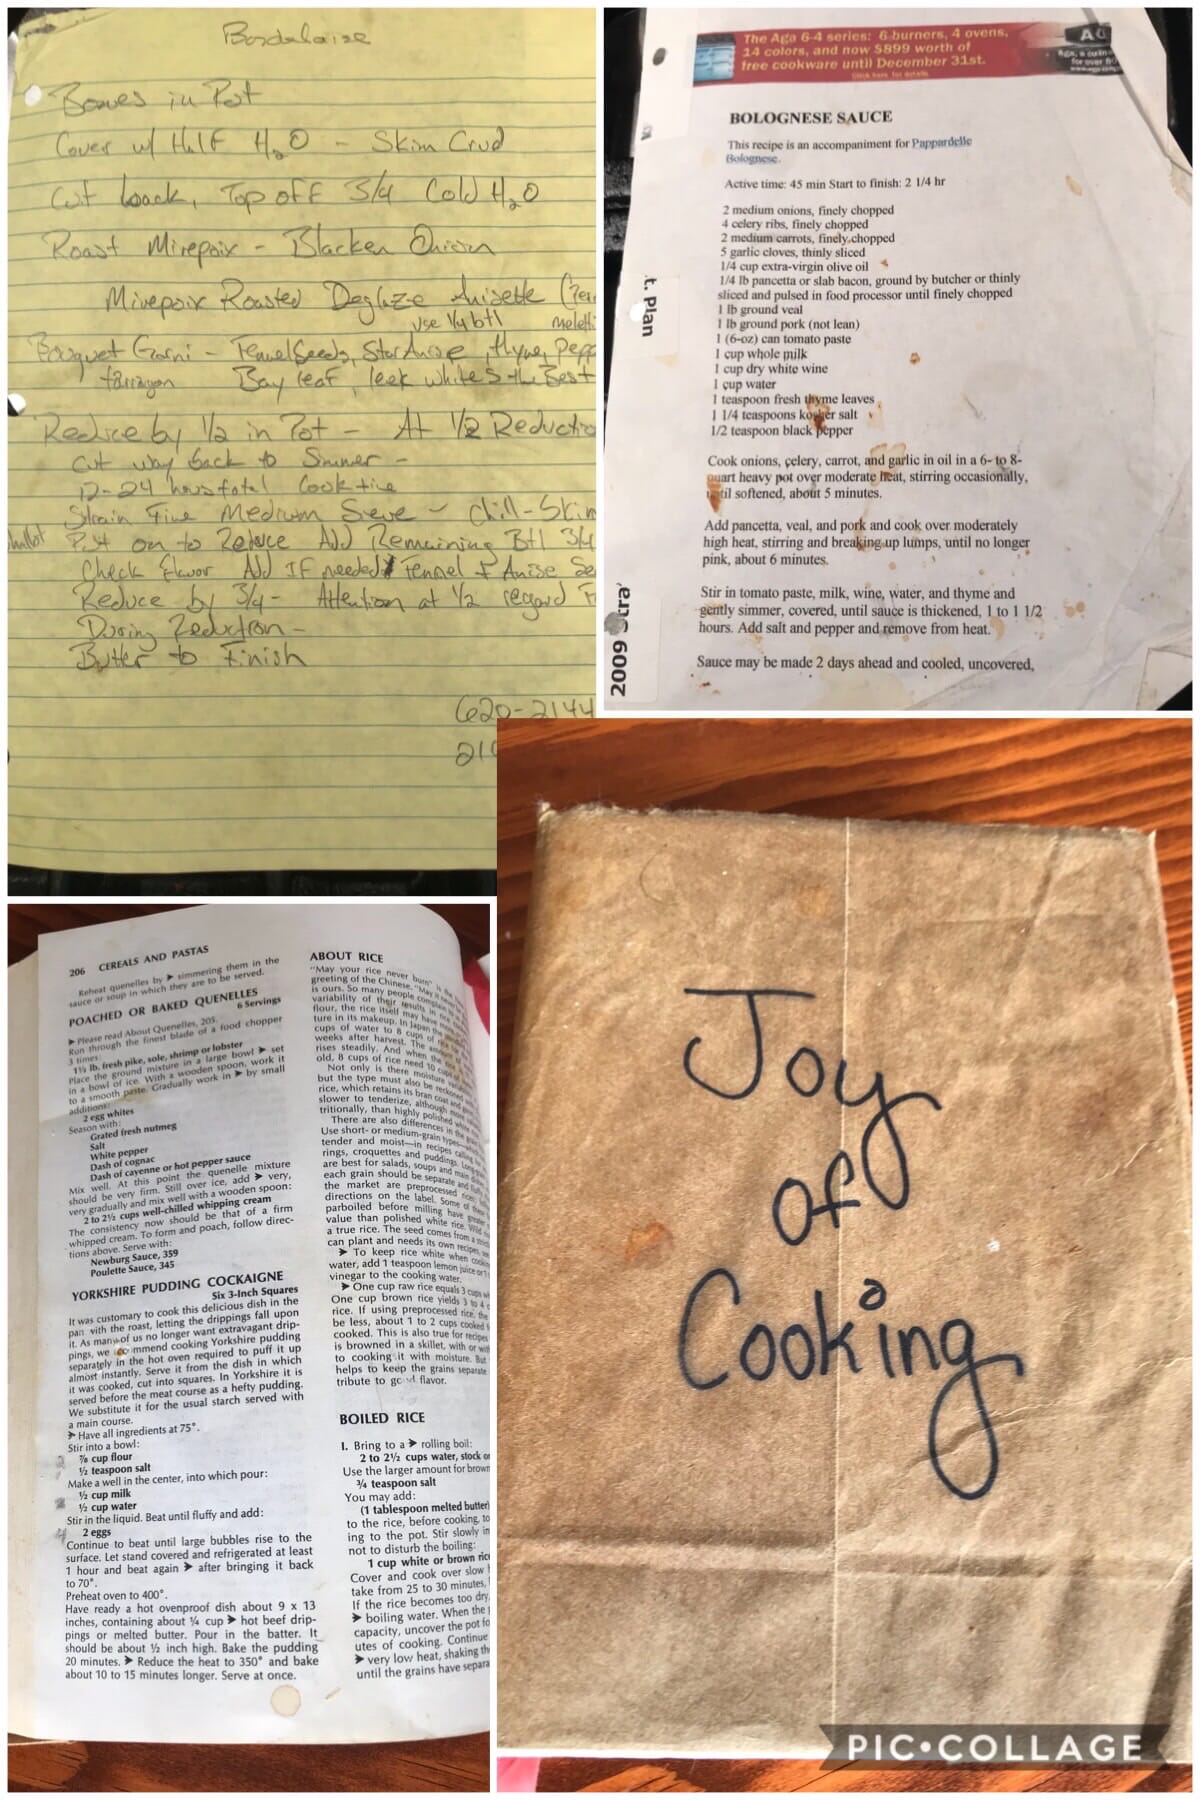 Bordelaise
Bones in Pot
Cover w/ Half H2O - Skim Crud
Cut back, Top off 3/4 Cold H2O
Roast Mirepoix - Blacken Onion
Mirepoix Roasted Deglaze Anisette
use 1/4 btl
Bouquet Garni - Fennel Seeds, Star Anise, thyme, Pepp
tarragon Bay leaf, leek whites
Reduce by 1/2 in Pot - At 1/2 Reductio
Cut way back to Simmer -
12-24 hours total Cook time
Strain Fine Medium Sieve - Chill - Skim
Put on to Reduce Add Remaining Btl 3/4
Check Flavor Add IF needed Fennel + Anise Se
Reduce by 3/4 - Attention at 1/2 regard F
During Reduction -
Butter to Finish
620-2144
210
The Aga 6-4 series: 6 burners, 4 ovens,
14 colors, and now $899 worth of
free cookware until December 31st.
Click here for details
AG
for over
t. Plan
2009
BOLOGNESE SAUCE
This recipe is an accompaniment for Pappardelle
Bolognese.
Active time: 45 min Start to finish: 2 1/4 hr
2 medium onions, finely chopped
4 celery ribs, finely chopped
2 medium carrots, finely chopped
5 garlic cloves, thinly sliced
1/4 cup extra-virgin olive oil
1/4 lb pancetta or slab bacon, ground by butcher or thinly
sliced and pulsed in food processor until finely chopped
1 lb ground veal
1 lb ground pork (not lean)
1 (6-oz) can tomato paste
1 cup whole milk
1 cup dry white wine
1 cup water
1 teaspoon fresh thyme leaves
1 1/4 teaspoons kosher salt
1/2 teaspoon black pepper
Cook onions, celery, carrot, and garlic in oil in a 6- to 8-
quart heavy pot over moderate heat, stirring occasionally,
until softened, about 5 minutes.
Add pancetta, veal, and pork and cook over moderately
high heat, stirring and breaking up lumps, until no longer
pink, about 6 minutes.
Stir in tomato paste, milk, wine, water, and thyme and
gently simmer, covered, until sauce is thickened, 1 to 1 1/2
hours. Add salt and pepper and remove from heat.
Sauce may be made 2 days ahead and cooled, uncovered,
206 CEREALS AND PASTAS
Reheat quenelles by ➤ simmering them in the
sauce or soup in which they are to be served.
POACHED OR BAKED QUENELLES
6 Servings
➤ Please read About Quenelles, 205.
Run through the finest blade of a food chopper
3 times:
1½ lb. fresh pike, sole, shrimp or lobster
Place the ground mixture in a large bowl ➤ set
in a bowl of ice. With a wooden spoon, work it
to a smooth paste. Gradually work in ➤ by small
additions:
2 egg whites
Season with:
Grated fresh nutmeg
Salt
White pepper
Dash of cognac
Dash of cayenne or hot pepper sauce
Mix well. At this point the quenelle mixture
should be very firm. Still over ice, add ➤ very,
very gradually and mix well with a wooden spoon:
2 to 2½ cups well-chilled whipping cream
The consistency now should be that of a firm
whipped cream. To form and poach, follow direc-
tions above. Serve with:
Newburg Sauce, 359
Poulette Sauce, 345
YORKSHIRE PUDDING COCKAIGNE
Six 3-Inch Squares
It was customary to cook this delicious dish in the
pan with the roast, letting the drippings fall upon
it. As many of us no longer want extravagant drip-
pings, we recommend cooking Yorkshire pudding
separately in the hot oven required to puff it up
almost instantly. Serve it from the dish in which
it was cooked, cut into squares. In Yorkshire it is
served before the meat course as a hefty pudding.
We substitute it for the usual starch served with
a main course.
➤ Have all ingredients at 75°.
Stir into a bowl:
⅞ cup flour
½ teaspoon salt
Make a well in the center, into which pour:
½ cup milk
½ cup water
Stir in the liquid. Beat until fluffy and add:
2 eggs
Continue to beat until large bubbles rise to the
surface. Let stand covered and refrigerated at least
1 hour and beat again ➤ after bringing it back
to 70°.
Preheat oven to 400°.
Have ready a hot ovenproof dish about 9 x 13
inches, containing about ¼ cup ➤ hot beef drip-
pings or melted butter. Pour in the batter. It
should be about ½ inch high. Bake the pudding
20 minutes. ➤ Reduce the heat to 350° and bake
about 10 to 15 minutes longer. Serve at once.
ABOUT RICE
"May your rice never burn" is the
greeting of the Chinese. "May it never
is ours. So many people complain
variability of their results in rice
flour, the rice itself may have more
ture in its makeup. In Japan the
cups of water to 8 cups of rice
weeks after harvest. The
rises steadily. And when the
old, 8 cups of rice need 10 cups
Not only is there moisture
but the type must also be reckoned
rice, which retains its bran coat and
slower to tenderize, although more
tritionally, than highly polished
There are also differences in the
Use short- or medium-grain types—
tender and moist—in recipes calling
rings, croquettes and puddings. Long
are best for salads, soups and main
each grain should be separate and
the market are preprocessed
directions on the label. Some of
parboiled before milling have greater
value than polished white rice. Wild
a true rice. The seed comes from a
can plant and needs its own recipes,
➤ To keep rice white when cooking
water, add 1 teaspoon lemon juice or
vinegar to the cooking water.
➤ One cup raw rice equals 3 cups
One cup brown rice yields 3 to 4
rice. If using preprocessed rice, the
be less, about 1 to 2 cups cooked
cooked. This is also true for recipes
is browned in a skillet, with or
to cooking it with moisture. But
helps to keep the grains separate
tribute to good flavor.
BOILED RICE
I. Bring to a ➤ rolling boil:
2 to 2½ cups water, stock or
Use the larger amount for brown
¾ teaspoon salt
You may add:
(1 tablespoon melted butter)
to the rice, before cooking, to
ing to the pot. Stir slowly in
not to disturb the boiling:
1 cup white or brown rice
Cover and cook over slow
take from 25 to 30 minutes,
If the rice becomes too dry,
➤ boiling water. When the
capacity, uncover the pot fo
utes of cooking. Continue
➤ very low heat, shaking th
until the grains have separa
Joy
of
Cooking
PIC•COLLAGE